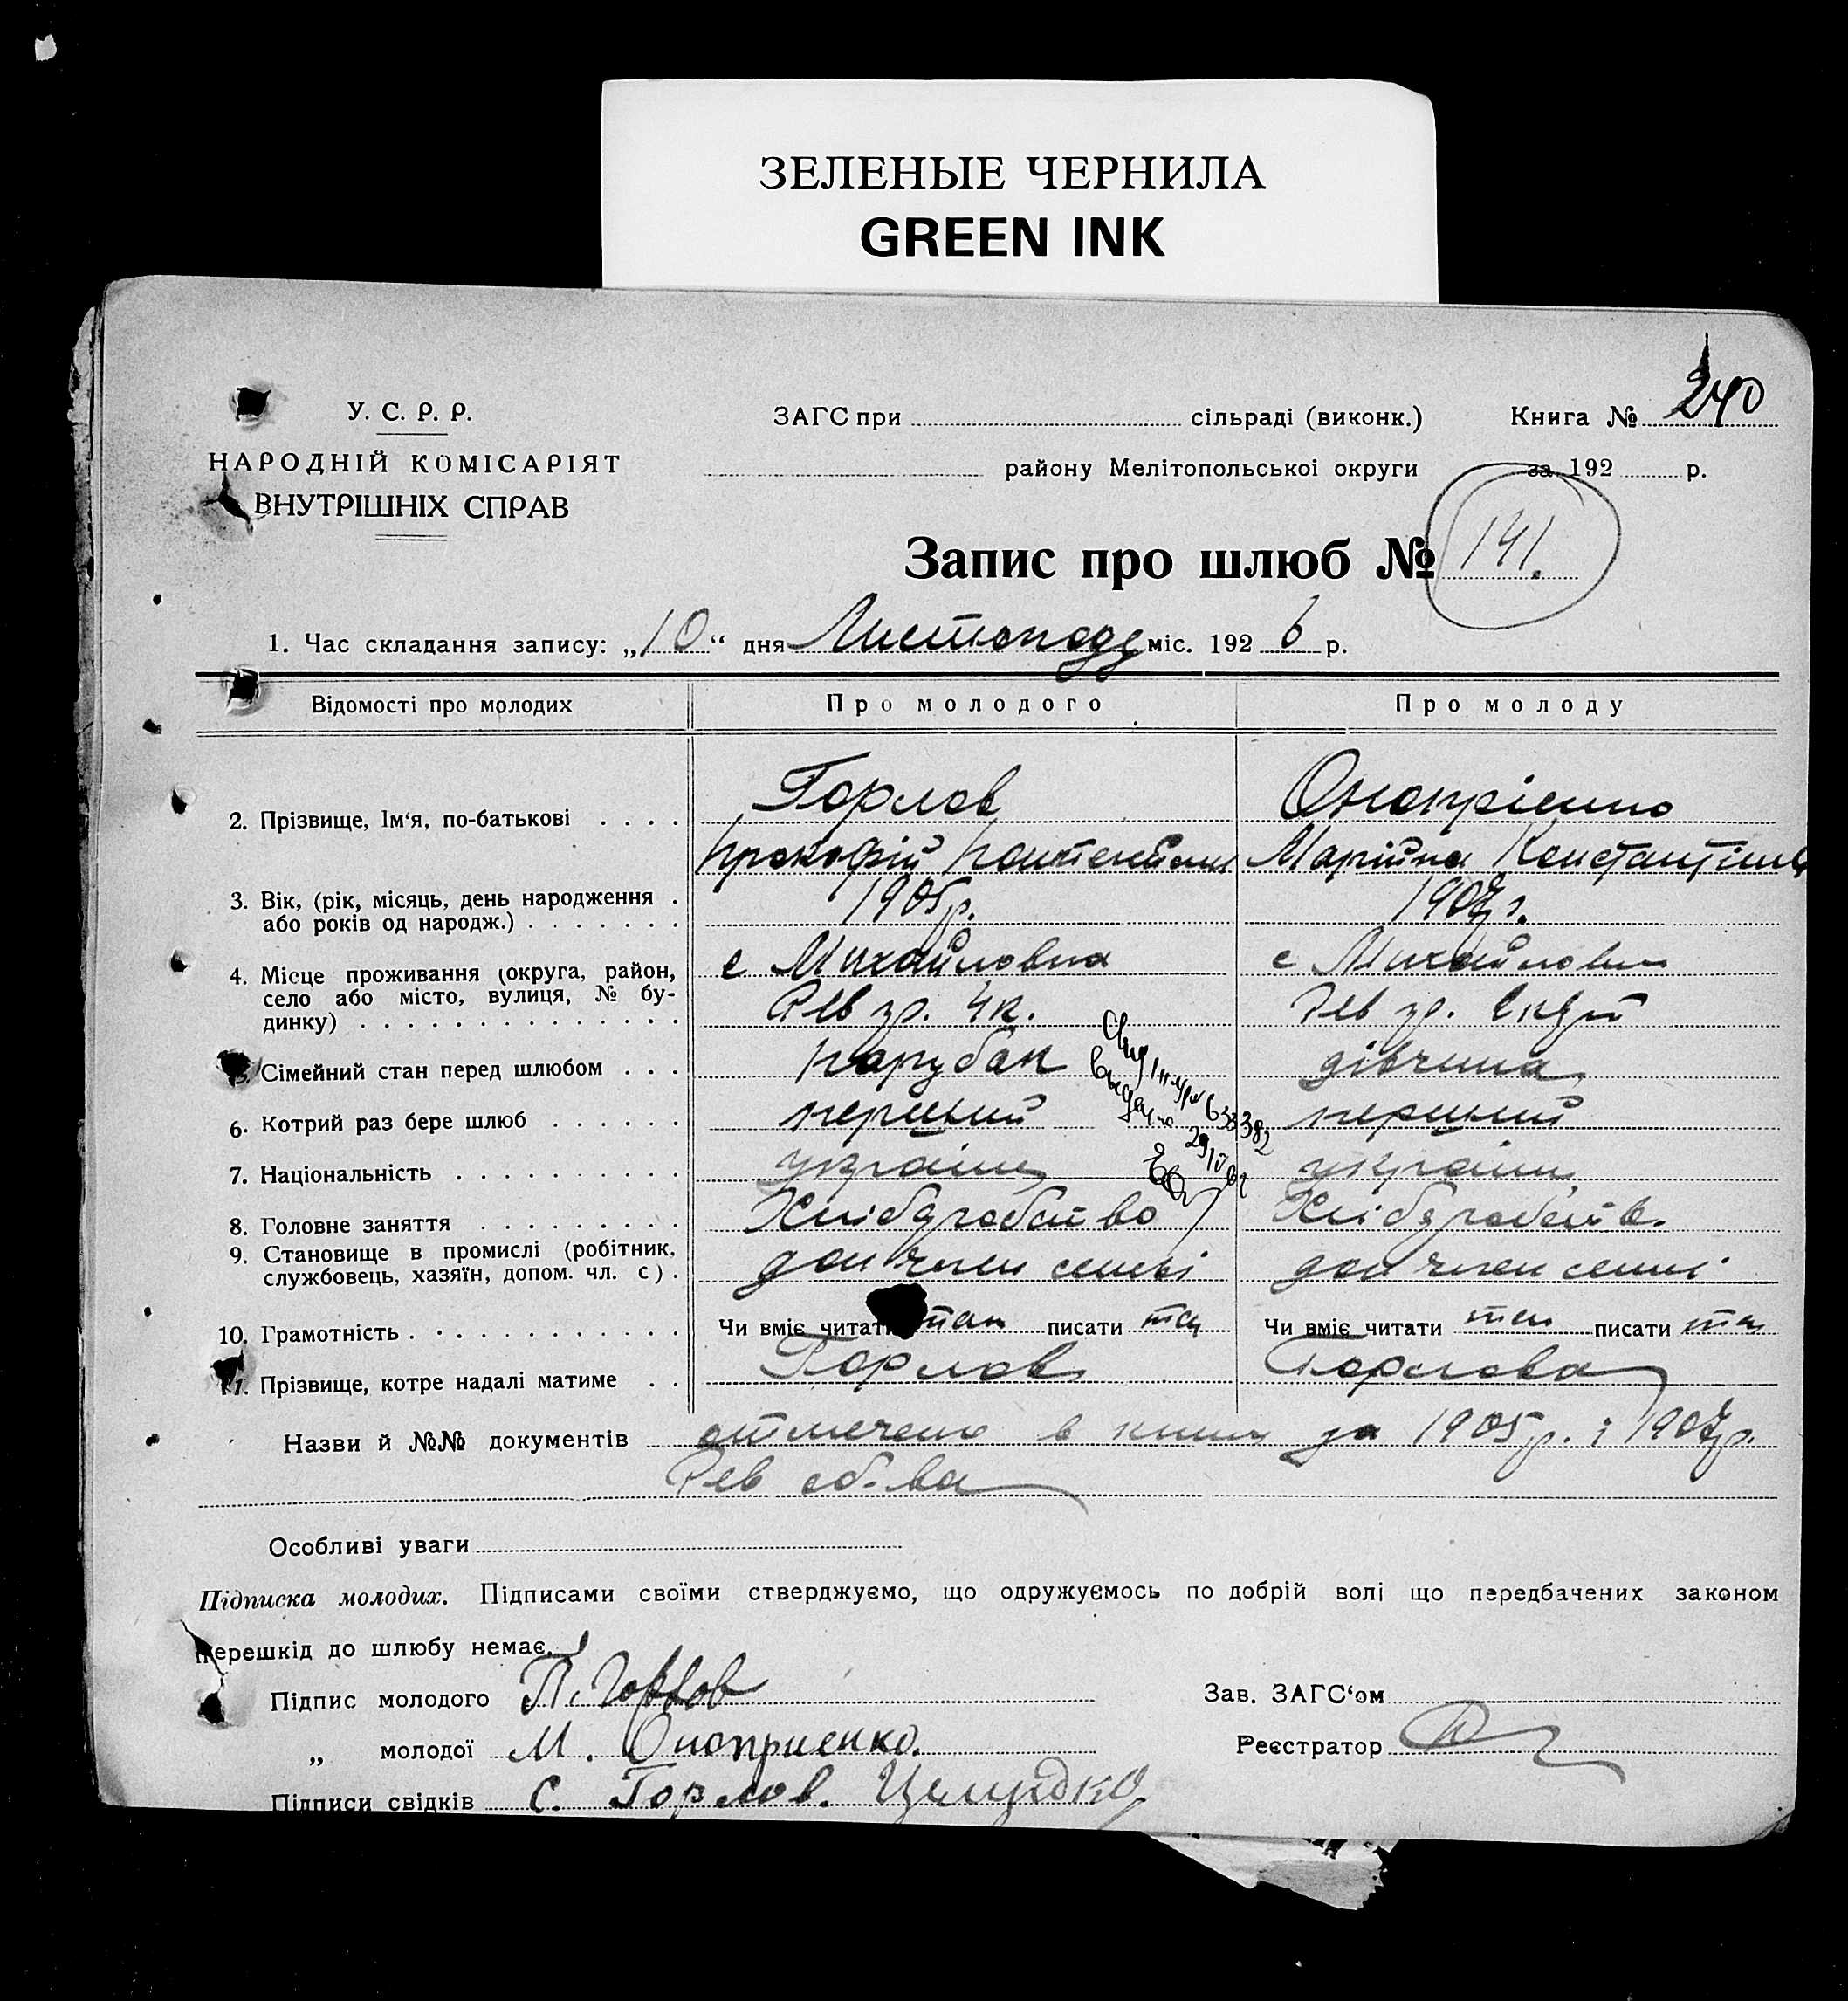 ЗЕЛЕНЫЕ ЧЕРНИЛА
GREEN INK
240
У. С. Р. Р.
НАРОДНІЙ КОМІСАРІЯТ
ВНУТРІШНІХ СПРАВ
ЗАГС при сільраді (виконк.) Книга №
району Мелітопольської округи за 192 р.
Запис про шлюб № 141.
1. Час складання запису: „10“ дня Листопаду міс. 1926 р.
Відомості про молодих Про молодого Про молоду
Горлов Онопрієнко
2. Прізвище, Ім‘я, по-батькові . . . .
Прокофій Марійка
3. Вік, (рік, місяць, день народження . 1905р. 1907г.
або років од народж.) . . . . . . .
4. Місце проживання (округа, район, с Михайловка с Михайловка
село або місто, вулиця, № бу- Рев гр.
динку) . . . . . . . . . . . . . . Рев гр.
5. Сімейний стан перед шлюбом . . . парубак дівчина
6. Котрий раз бере шлюб . . . . . . перший перший
633382
7. Національність . . . . . . . . . . україн україн
8. Головне заняття . . . . . . . . . Хлібаробство Хлібаробств.
9. Становище в промислі (робітник, доп член семьі доп член семьі
службовець, хазяїн, допом. чл. с) .
10. Грамотність . . . . . . . . . . . . Чи вміє читати так писати так Чи вміє читати так писати так
11. Прізвище, котре надалі матиме . . Горлов Горлова
Назви й №№ документів отмечено в книги за 1905р. і 1907р.
Рев об-ва
Особливі уваги
Підписка молодих. Підписами своїми стверджуємо, що одружуємось по добрій волі що передбачених законом
перешкід до шлюбу немає.
Підпис молодого П. Горлов Зав. ЗАГС‘ом
„ молодої М. Оноприенко. Реєстратор
Підписи свідків С. Горлов.